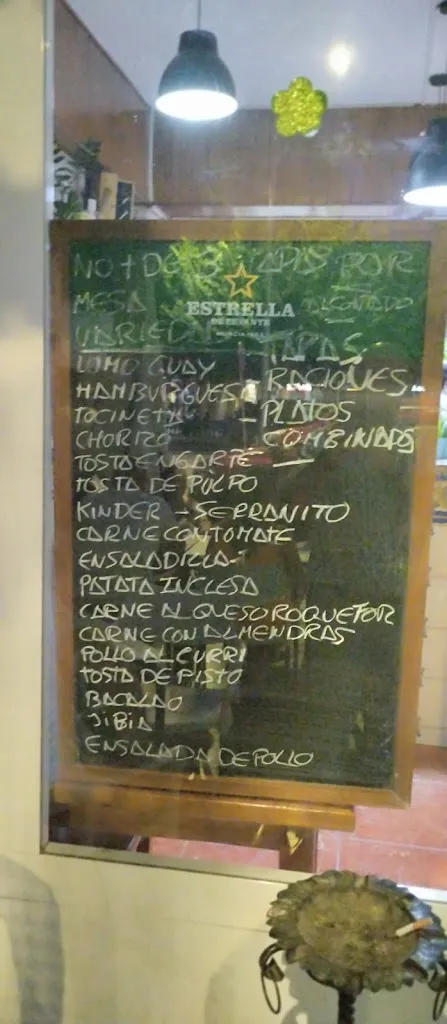 NO + DE 3 TAPAS POR
MESA AL CONTADO
ESTRELLA
DE LEVANTE
VARIEDAD - TAPAS
LOMO GUAY - RACIONES
HAMBURGUESA - PLATOS
TOCINETA COMBINADOS
CHORIZO
TOSTA ENGARTE
TOSTA DE PULPO
KINDER - SERRANITO
CARNE CON TOMATE
ENSALADILLA
PATATA INGLESA
CARNE AL QUESO ROQUEFOR
CARNE CON ALMENDRAS
POLLO AL CURRI
TOSTA DE PISTO
BACALAO
JIBIA
ENSALADA DE POLLO